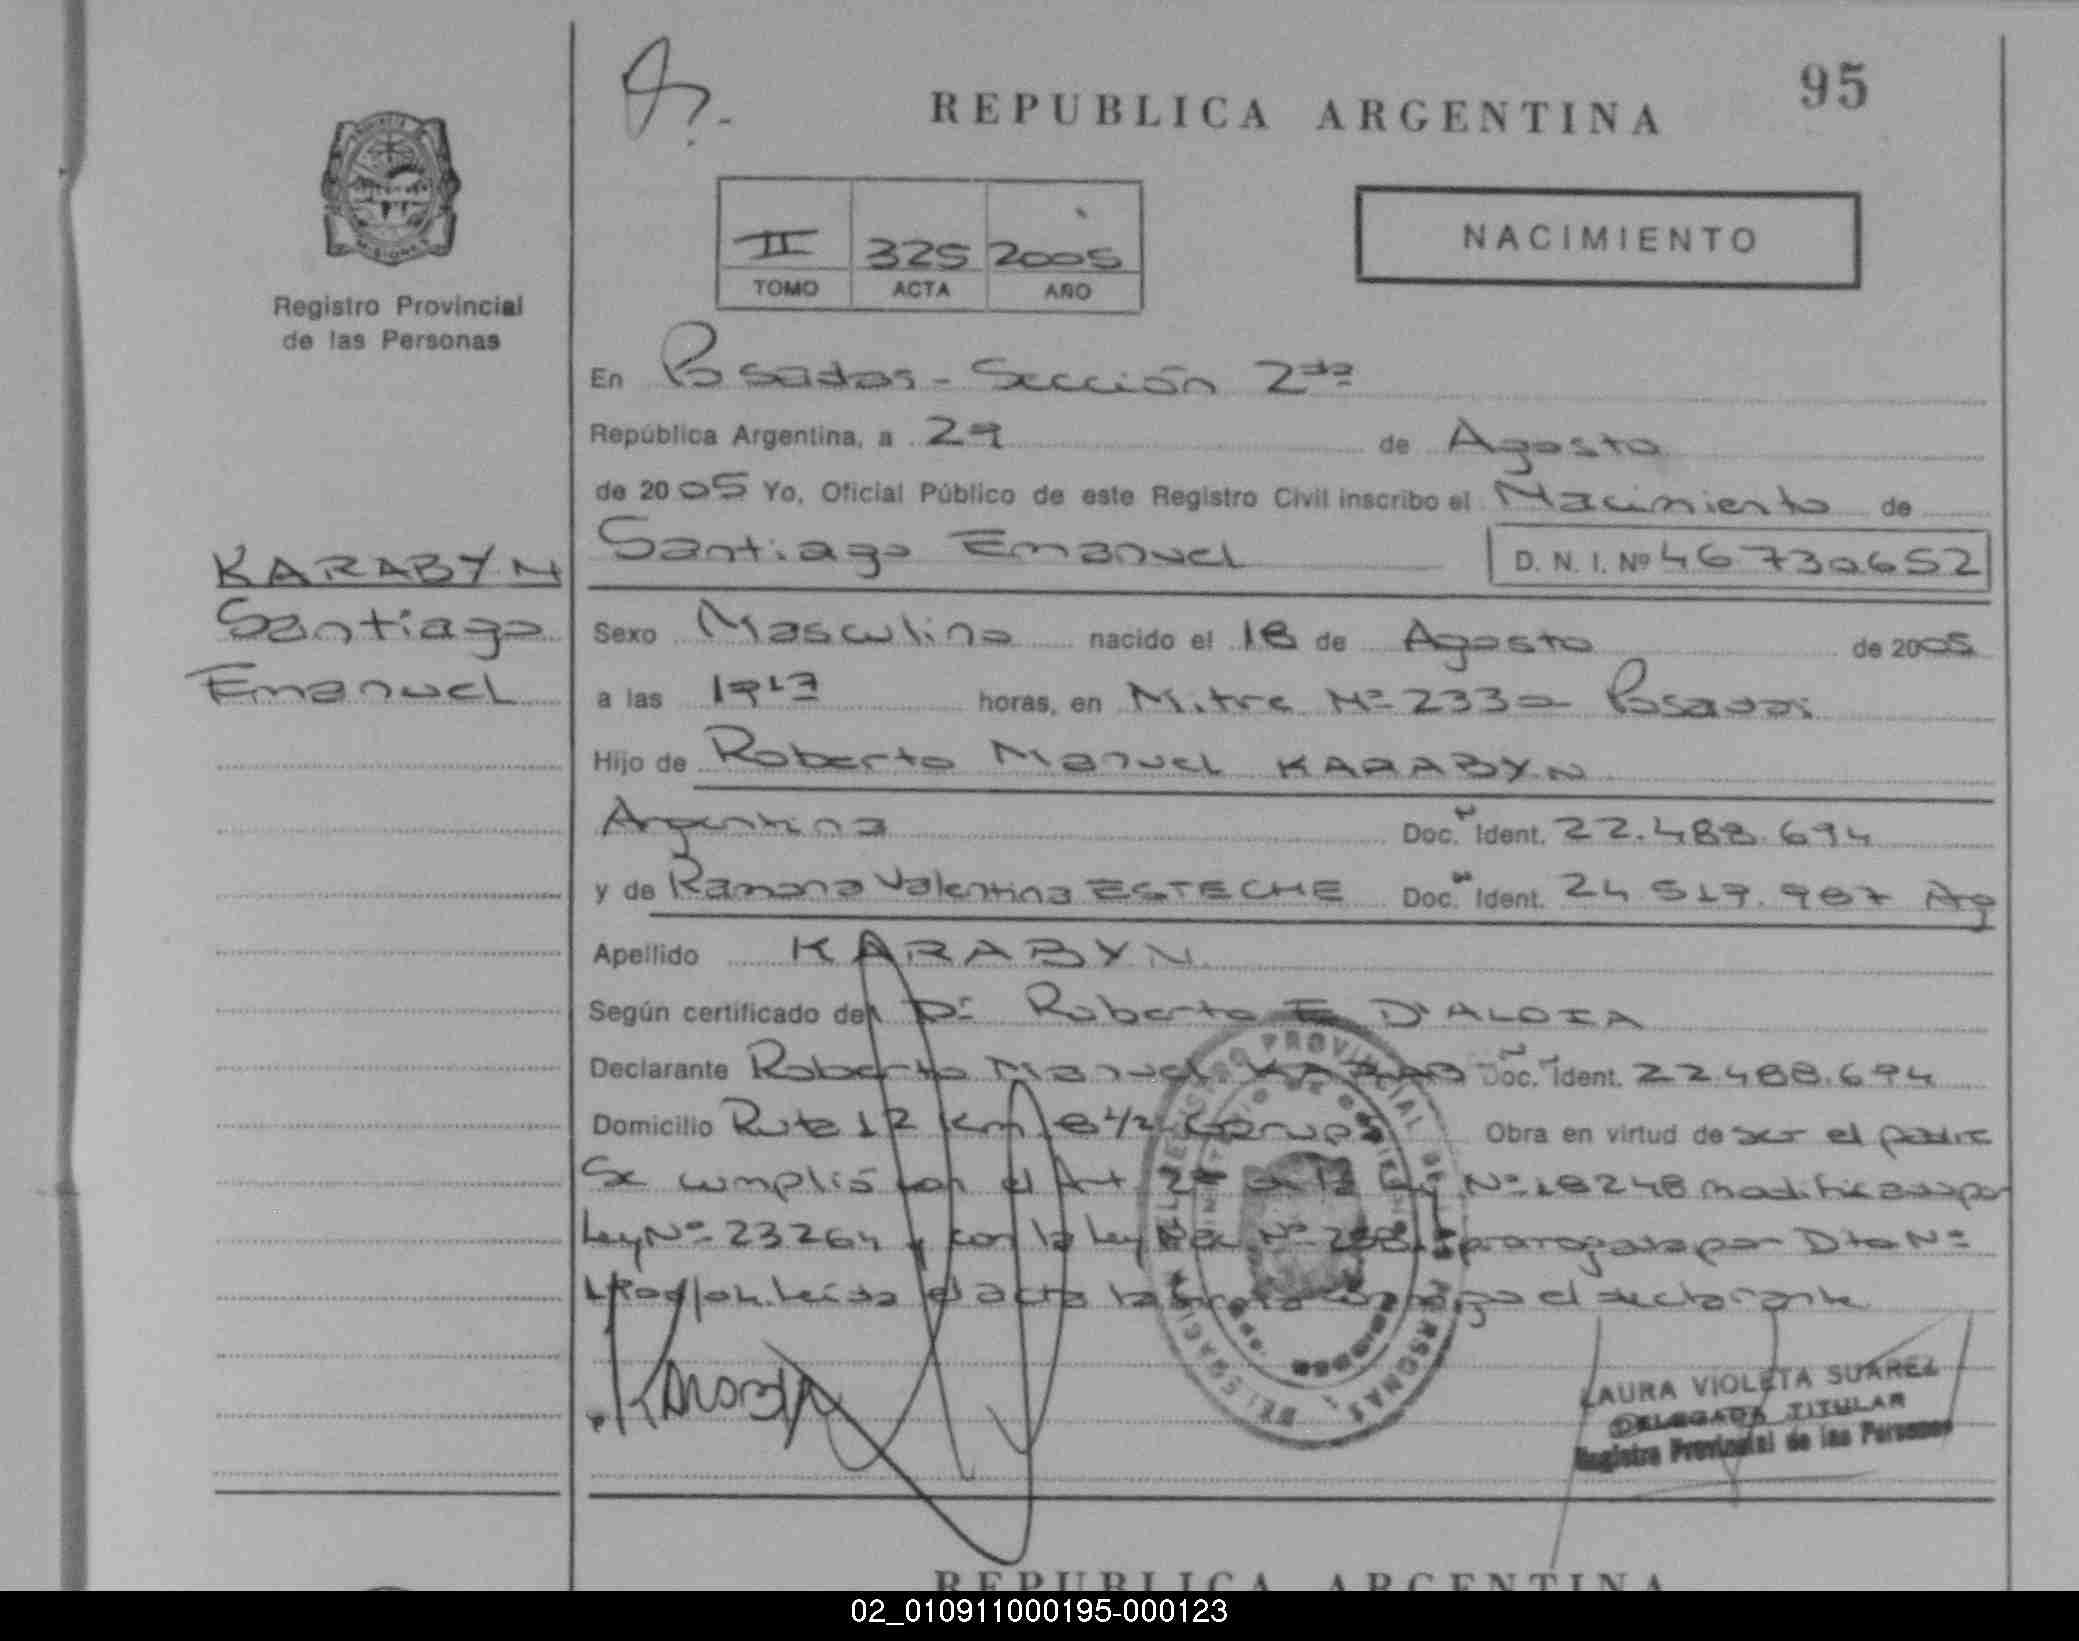 95
REPUBLICA ARGENTINA
NACIMIENTO
II 325 2005
TOMO ACTA AÑO
Registro Provincial
de las Personas
En Posadas - Sección 2da
República Argentina, a 29 de Agosto
de 2005 Yo, Oficial Público de este Registro Civil inscribo el Nacimiento de
Santiago Emanuel D. N. I. Nº 46730652
KARABYN
Santiago
Emanuel
Sexo Masculino nacido el 18 de Agosto de 2005
a las 1917 horas, en Mitre Nº 2330 Posadas
Hijo de Roberto Manuel KARABYN
Argentina Doc. Ident. 22.488.694
y de Ramona Valentina ESTECHE Doc. Ident. 24.519.987 Ag
Apellido KARABYN
Según certificado del Dr Roberto E D'ALOIA
Declarante Roberto Manuel KARAB Doc. Ident. 22.488.694
Domicilio Ruta 12 Km 8 1/2 Garupá Obra en virtud de ser el padre
Se cumplió con el Art 2º de la Ley Nº 18248 modificada por
Ley Nº 23264 y con la Ley Nº prorrogada por Dto Nº
Leída el acta la firma conmigo el declarante
REGISTRO PROVINCIAL DE LAS PERSONAS
DELEGACION
LAURA VIOLETA SUAREZ
DELEGADA TITULAR
Registro Provincial de las Personas
REPUBLICA ARGENTINA
02_010911000195-000123